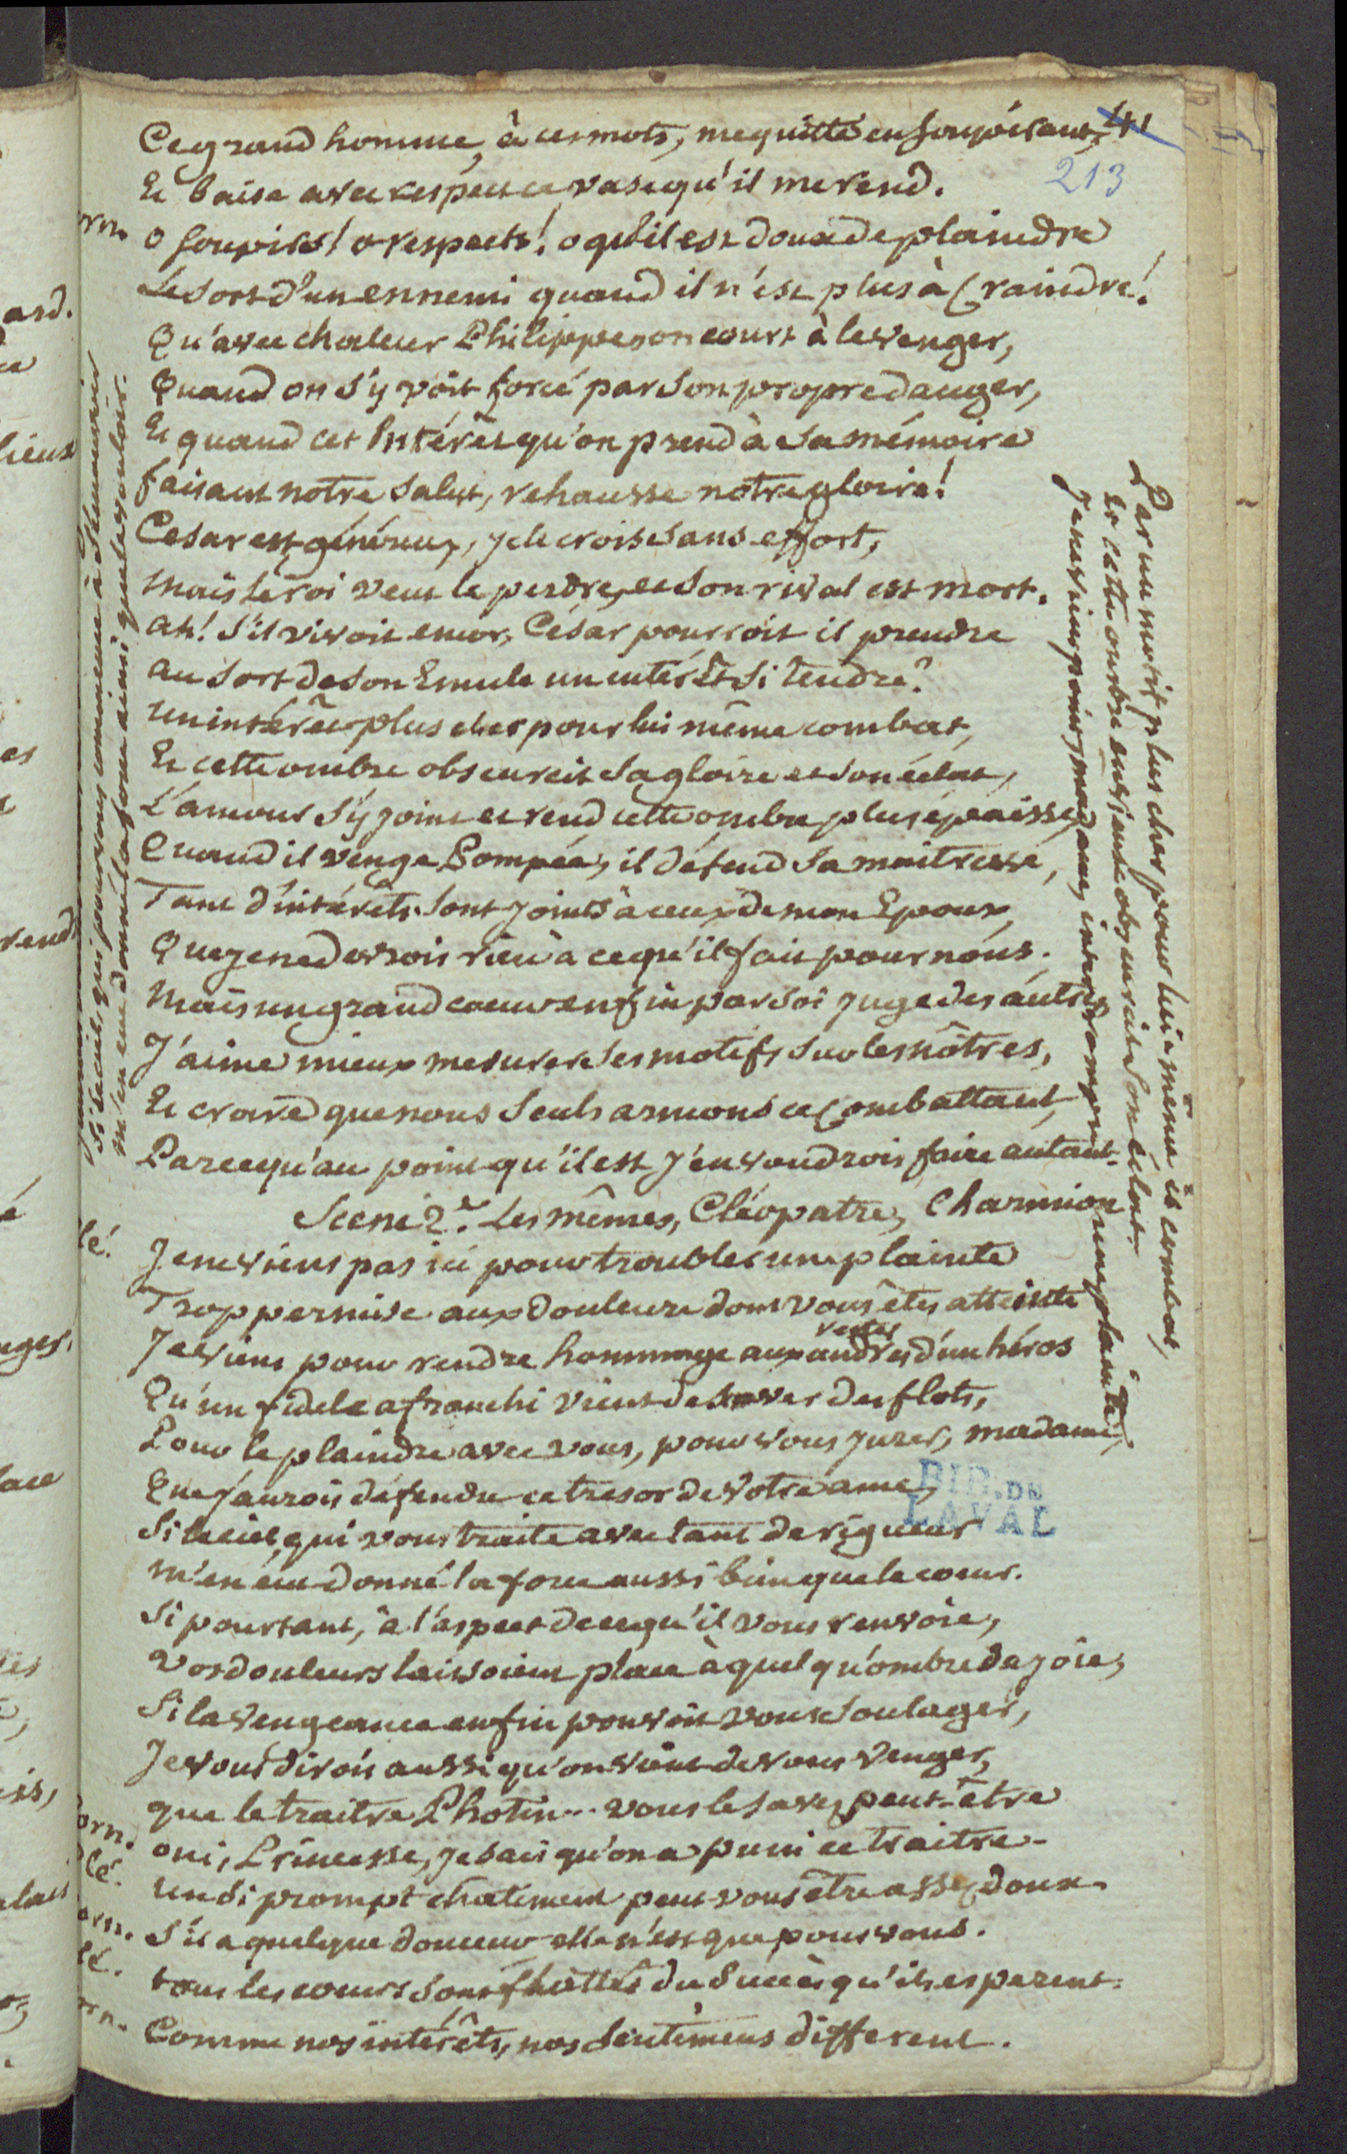 Ce grand homme, à ces mots, me quitte en soupirant, 41
Et baise avec respect ce vase qu'il me rend. 213
orn. o soupirs! o respects! o qu'il est doux de plaindre
Le sort d'un ennemi quand il n'est plus à Craindre!
Qu'avec chaleur Philippe on court à le venger,
Quand on s'y voit forcé par son propre danger,
Et quand cet Intérêt qu'on prend à sa mémoire
faisant notre salut, rehausse notre gloire!
Cesar est généreux, je le crois sans effort,
Mais le roi veut le perdre, et son rival est mort.
ah! s'il vivoit encor, César pourroit il prendre
au sort de son Emule un intérêt si tendre?
un intérêt plus cher pour lui même combat,
Et cette ombre obscurcit sa gloire et son éclat,
L'amour s'y joint et rend cette ombre plus épaisse,
Quand il venge Pompée, il défend sa maitresse,
Tant d'intérêts sont joints à ceux de mon Epoux,
Que je ne devrois rien à ce qu'il fait pour nous.
Mais un grand coeur enfin par soi juge des autres
J'aime mieux mesurer ses motifs sur les nôtres,
Et croire que nous seuls armons ce Combattant,
Parcequ'au point qu'il est j'en voudrois faire autant.
Scene 2e. Les mêmes, Cléopatre, Charmion
lé. Je ne viens pas ici pour troubler une plainte
Trop permise aux douleurs dont vous êtes atteinte
restes
Je viens pour rendre hommage aux cendres d'un héros
Qu'un fidele afranchi vient de sauver des flots,
Pour le plaindre avec vous, pour vous jurer, madame,
Que j'aurois défendu ce tresor de votre ame,
Si le ciel, qui vous traite avec tant de rigueur
m'en eut donné la force aussi bien que le coeur.
Si pourtant, à l'aspect de ce qu'il vous renvoie,
vos douleurs laissoient place à quelqu'ombre de joie,
Si la vengeance enfin pouvoit vous soulager,
Je vous dirois aussi qu'on vient de vous venger,
que le traitre Photin... vous le savez peut-être
orn. oui, Princesse, je sais qu'on a puni ce traitre.
lé. un si prompt chatiment peut vous être assez doux.
orn. s'il a quelque douceur elle n'est que pour vous.
lé. tous les coeurs sont flattés du succès qu'ils esperent.
orn. Comme nos intérêts, nos sentimens different.
Par un motif plus cher pour lui-même il combat,
Et cette ombre en s'y joint obscurcit son éclat.
Je ne viens point, madame, interrompre une plainte
Si le ciel, qui pour vous commence à s'émouvoir
m'en eut donné la force ainsi que le vouloir.
BIB. DE
LAVAL